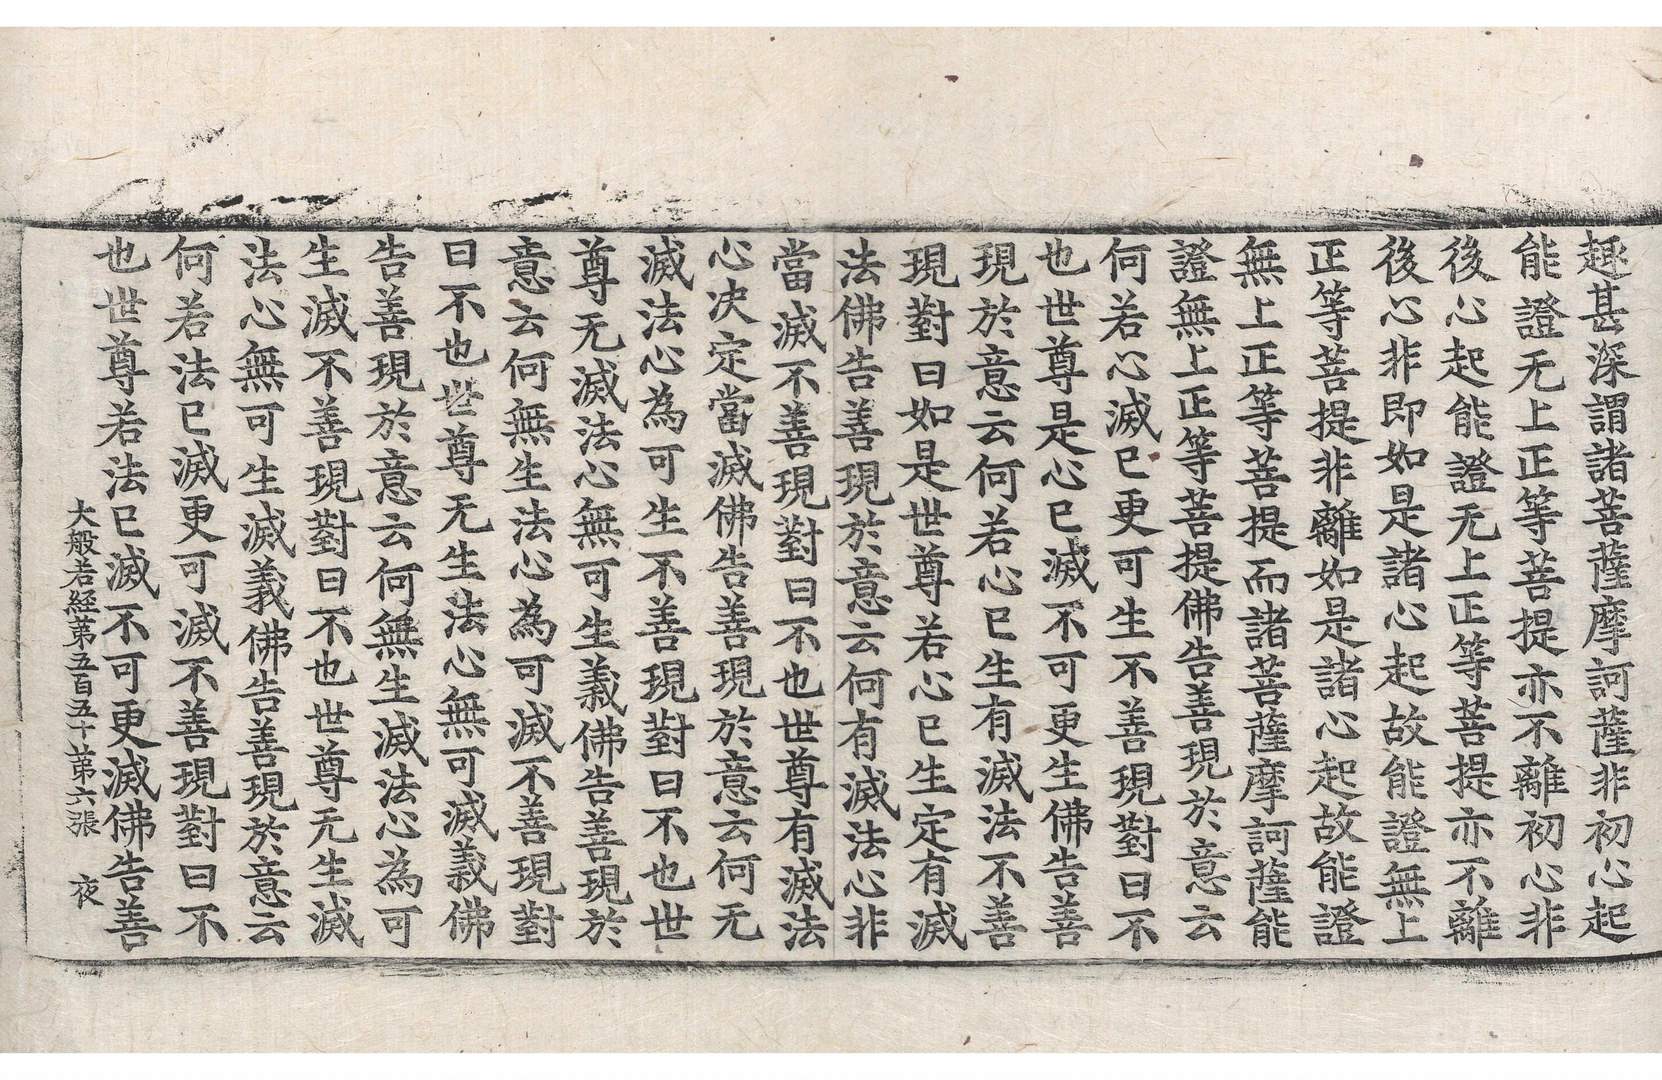 趣甚深謂諸菩薩摩訶薩非初心起
能證无上正等菩提亦不離初心非
後心起能證无上正等菩提亦不離
後心非即如是諸心起故能證無上
正等菩提非離如是諸心起故能證
無上正等菩提而諸菩薩摩訶薩能
證無上正等菩提佛告善現於意云
何若心滅已更可生不善現對曰不
也世尊是心已滅不可更生佛告善
現於意云何若心已生有滅法不善
現對曰如是世尊若心已生定有滅
法佛告善現於意云何有滅法心非
當滅不善現對曰不也世尊有滅法
心決定當滅佛告善現於意云何无
滅法心為可生不善現對曰不也世
尊无滅法心無可生義佛告善現於
意云何無生法心為可滅不善現對
曰不也世尊无生法心無可滅義佛
告善現於意云何無生滅法心為可
生滅不善現對曰不也世尊无生滅
法心無可生滅義佛告善現於意云
何若法已滅更可滅不善現對曰不
也世尊若法已滅不可更滅佛告善
大般若經第五百五十第六張　夜